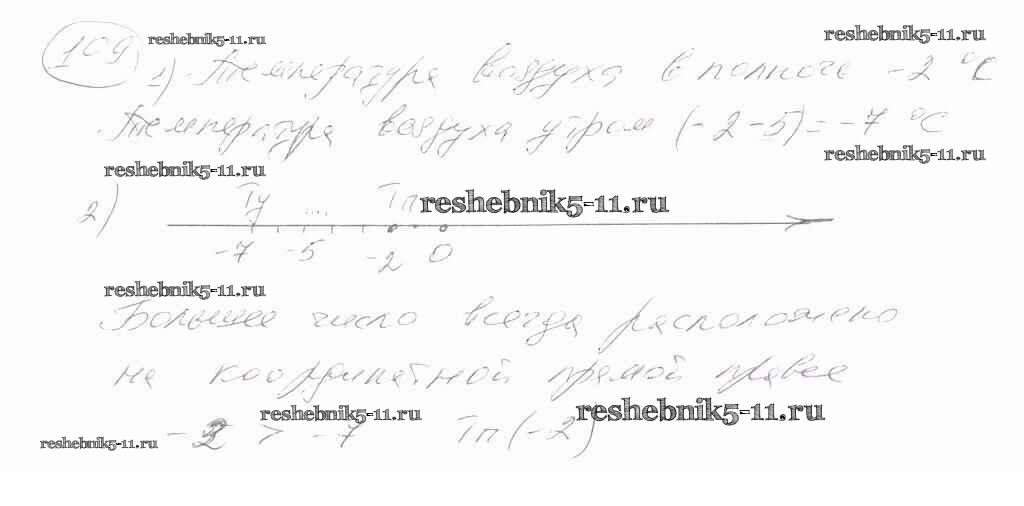 109 reshebnik5-11.ru reshebnik5-11.ru
1) Температура воздуха в полночь -2 °C
Температура воздуха утром (-2-5)=-7 °C
reshebnik5-11.ru reshebnik5-11.ru
2) Ту ... Тп reshebnik5-11.ru
-7 -5 -2 0
reshebnik5-11.ru
Большее число всегда расположено
на координатной прямой правее
reshebnik5-11.ru reshebnik5-11.ru
reshebnik5-11.ru -2 > -7 Тп(-2)